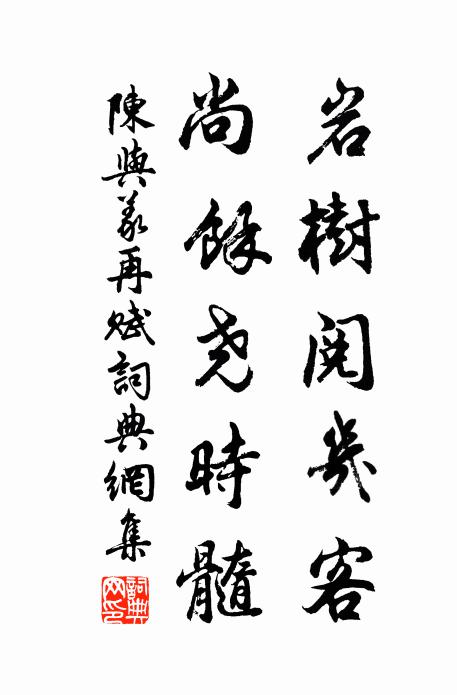 岩樹閱幾客
尚餘堯時髓
陳與義再賦詞典網集
詞典網印